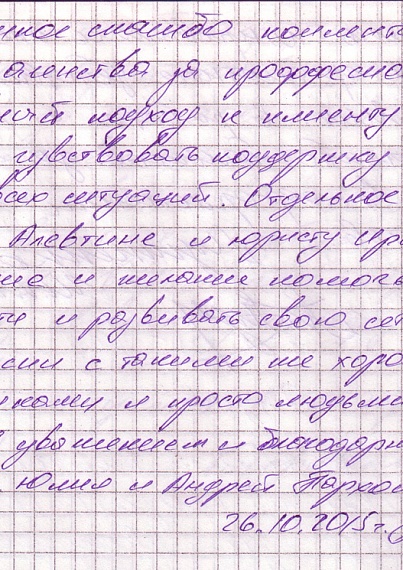 нное спасибо коллекти
гентства за професси
ный подход к клиенту
чувствовать поддержку
всех ситуаций. Отдельное
Алевтине и юристу Ири
ние и желание помочь
ти и развивать свою сет
сии с такими же хоро
иками и просто людьми
С уважением и благодарн
Юлия и Андрей Пархо
26.10.2015г.